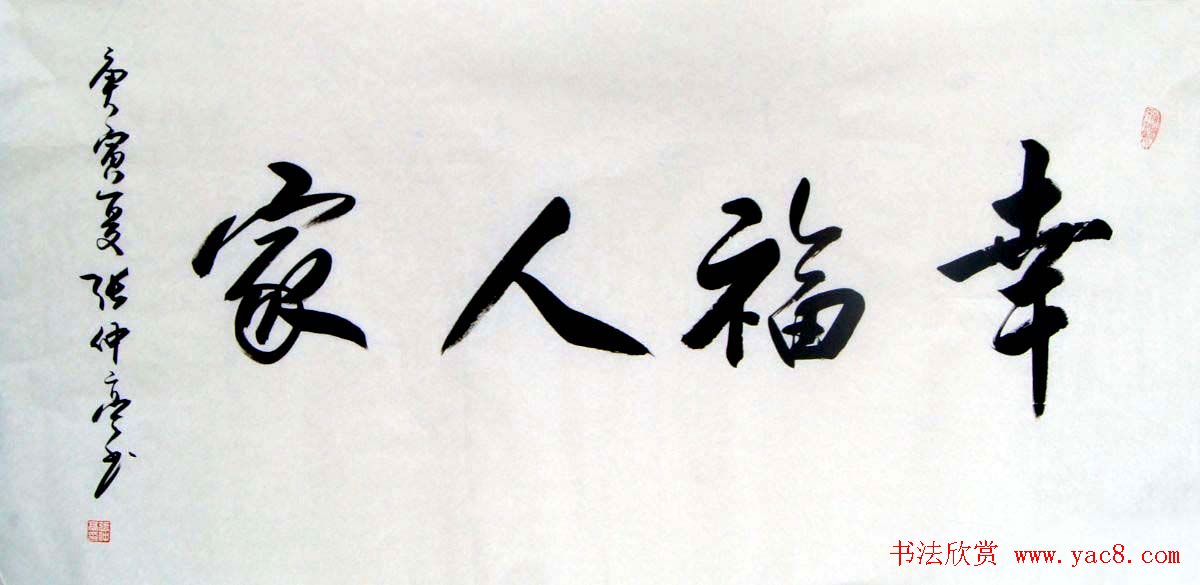 幸福人家
庚寅夏张仲亭书
书法欣赏 www.yac8.com